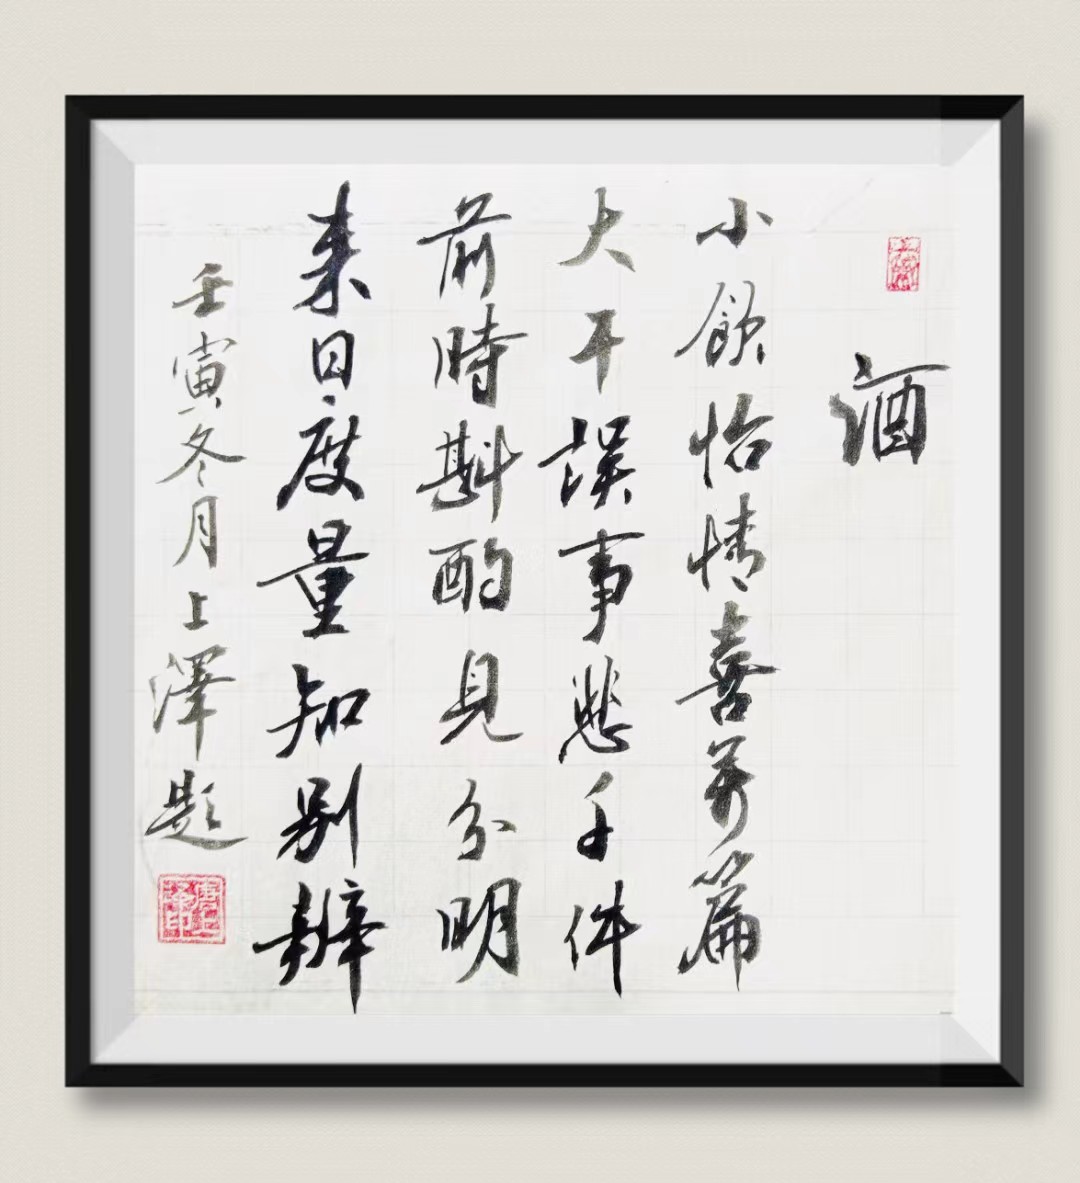 酒
小飲怡情喜萬篇
大干誤事悲千件
前時斟酌見分明
来日度量知别辨
壬寅冬月上澤題